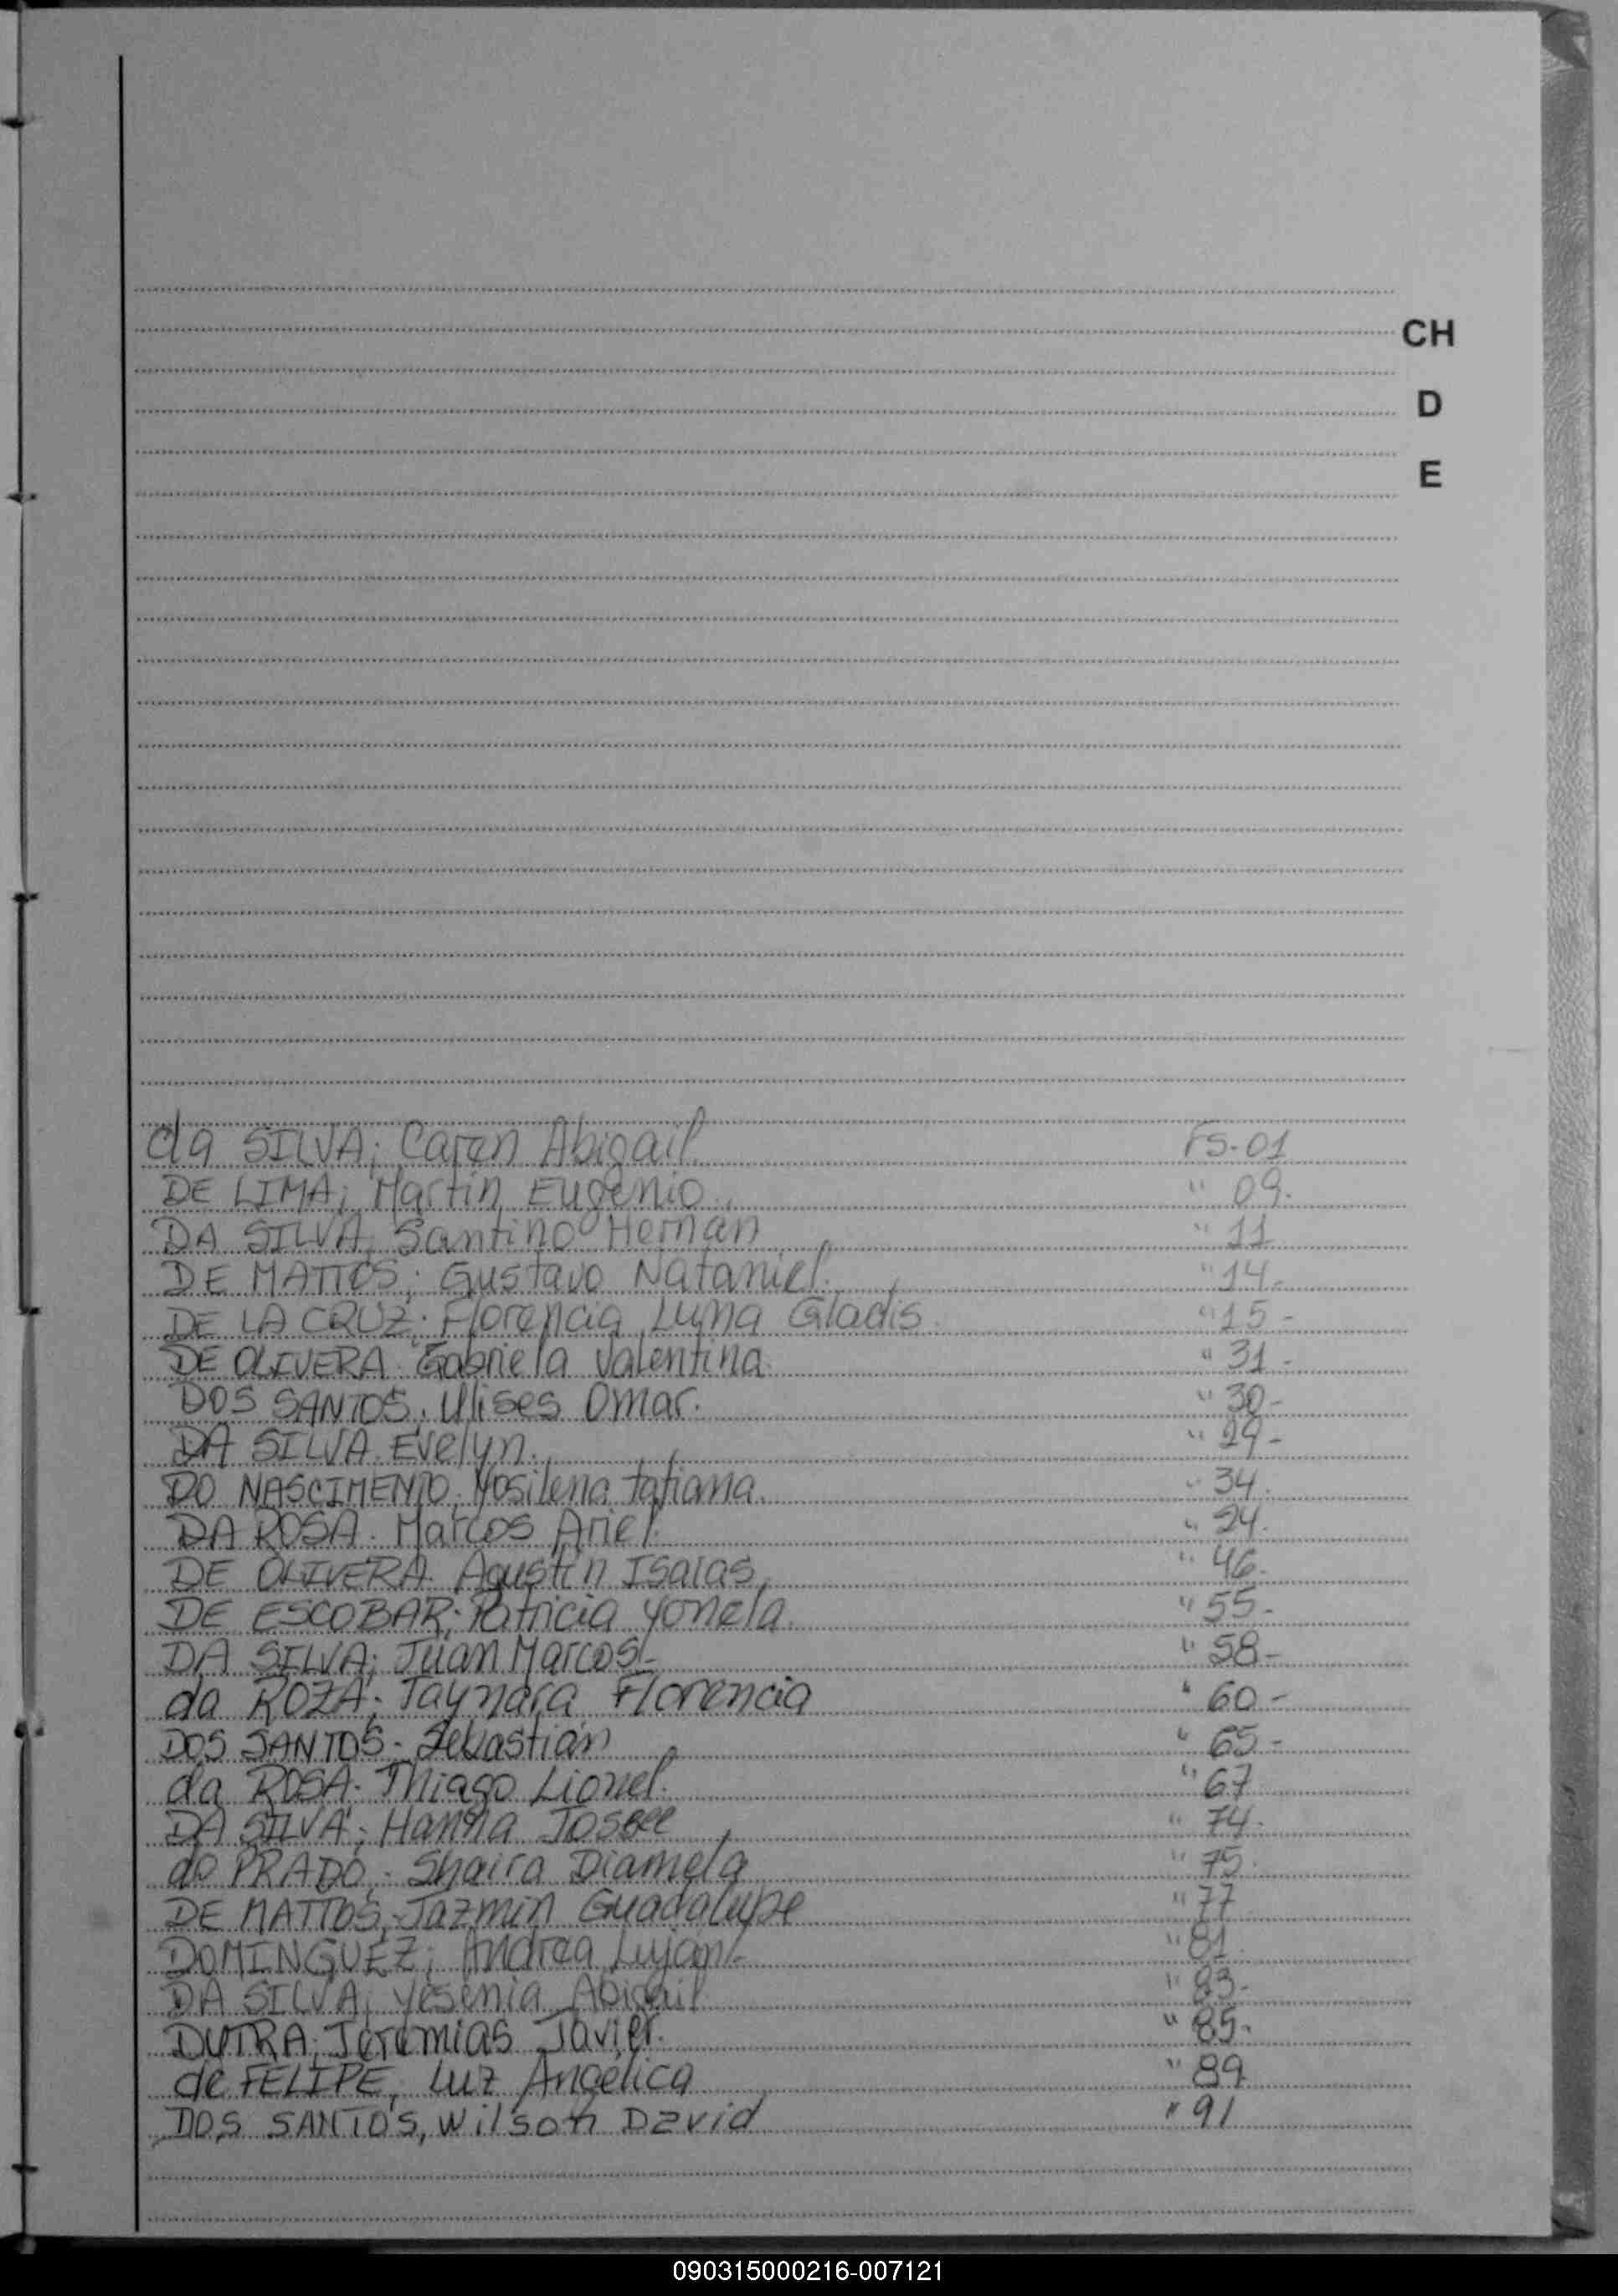 CH
D
E
da SILVA; Caren Abigail. FS-01
DE LIMA; Martin Eugenio. " 09.
DA SILVA, Santino Hernan " 11
DE MATTOS; Gustavo Nataniel. " 14.-
DE LA CRUZ; Florencia Luna Gladis. " 15-
DE OLIVERA. Gabriela Valentina " 31-
DOS SANTOS, Ulises Omar. " 30-
DA SILVA. Evelyn. " 29-
DO NASCIMENTO; Yosilena tatiana. " 34.
DA ROSA. Marcos Ariel. " 24.
DE OLIVERA. Agustin Isaias, " 46.
DE ESCOBAR; Patricia yonela. " 55-
DA SILVA; Juan Marcos- " 58-
da ROZA; Taynara Florencia " 60-
DOS SANTOS- Sebastián " 65-
da ROSA. Thiago Lionel. " 67
DA SILVA; Hanna " 74.
do PRADO;- Shaira Diamela " 75.
DE MATTOS;- Jazmin Guadalupe " 77
DOMINGUEZ; Andrea Lujan- " 81
DA SILVA; Yesenia Abigail " 83-
DUTRA; Jeremias Javier. " 85-
de FELIPE; Luz Angélica " 89
DOS SANTOS, Wilson David " 91
090315000216-007121